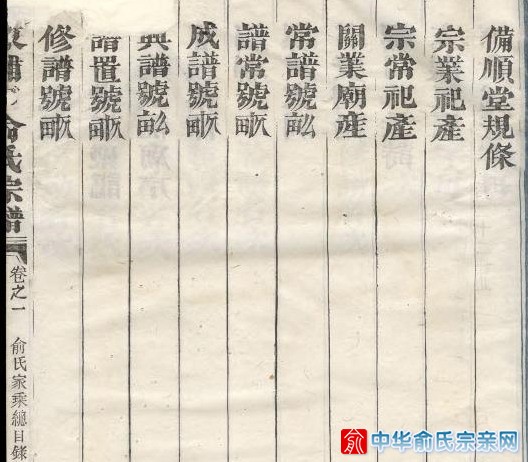 備順堂規條
宗業祀產
宗常祀產
關業廟產
常譜號畝
譜常號畝
成譜號畝
典譜號畝
譜置號畝
修譜號畝
俞氏宗譜
卷之一
俞氏家乘總目錄
俞 中华俞氏宗亲网